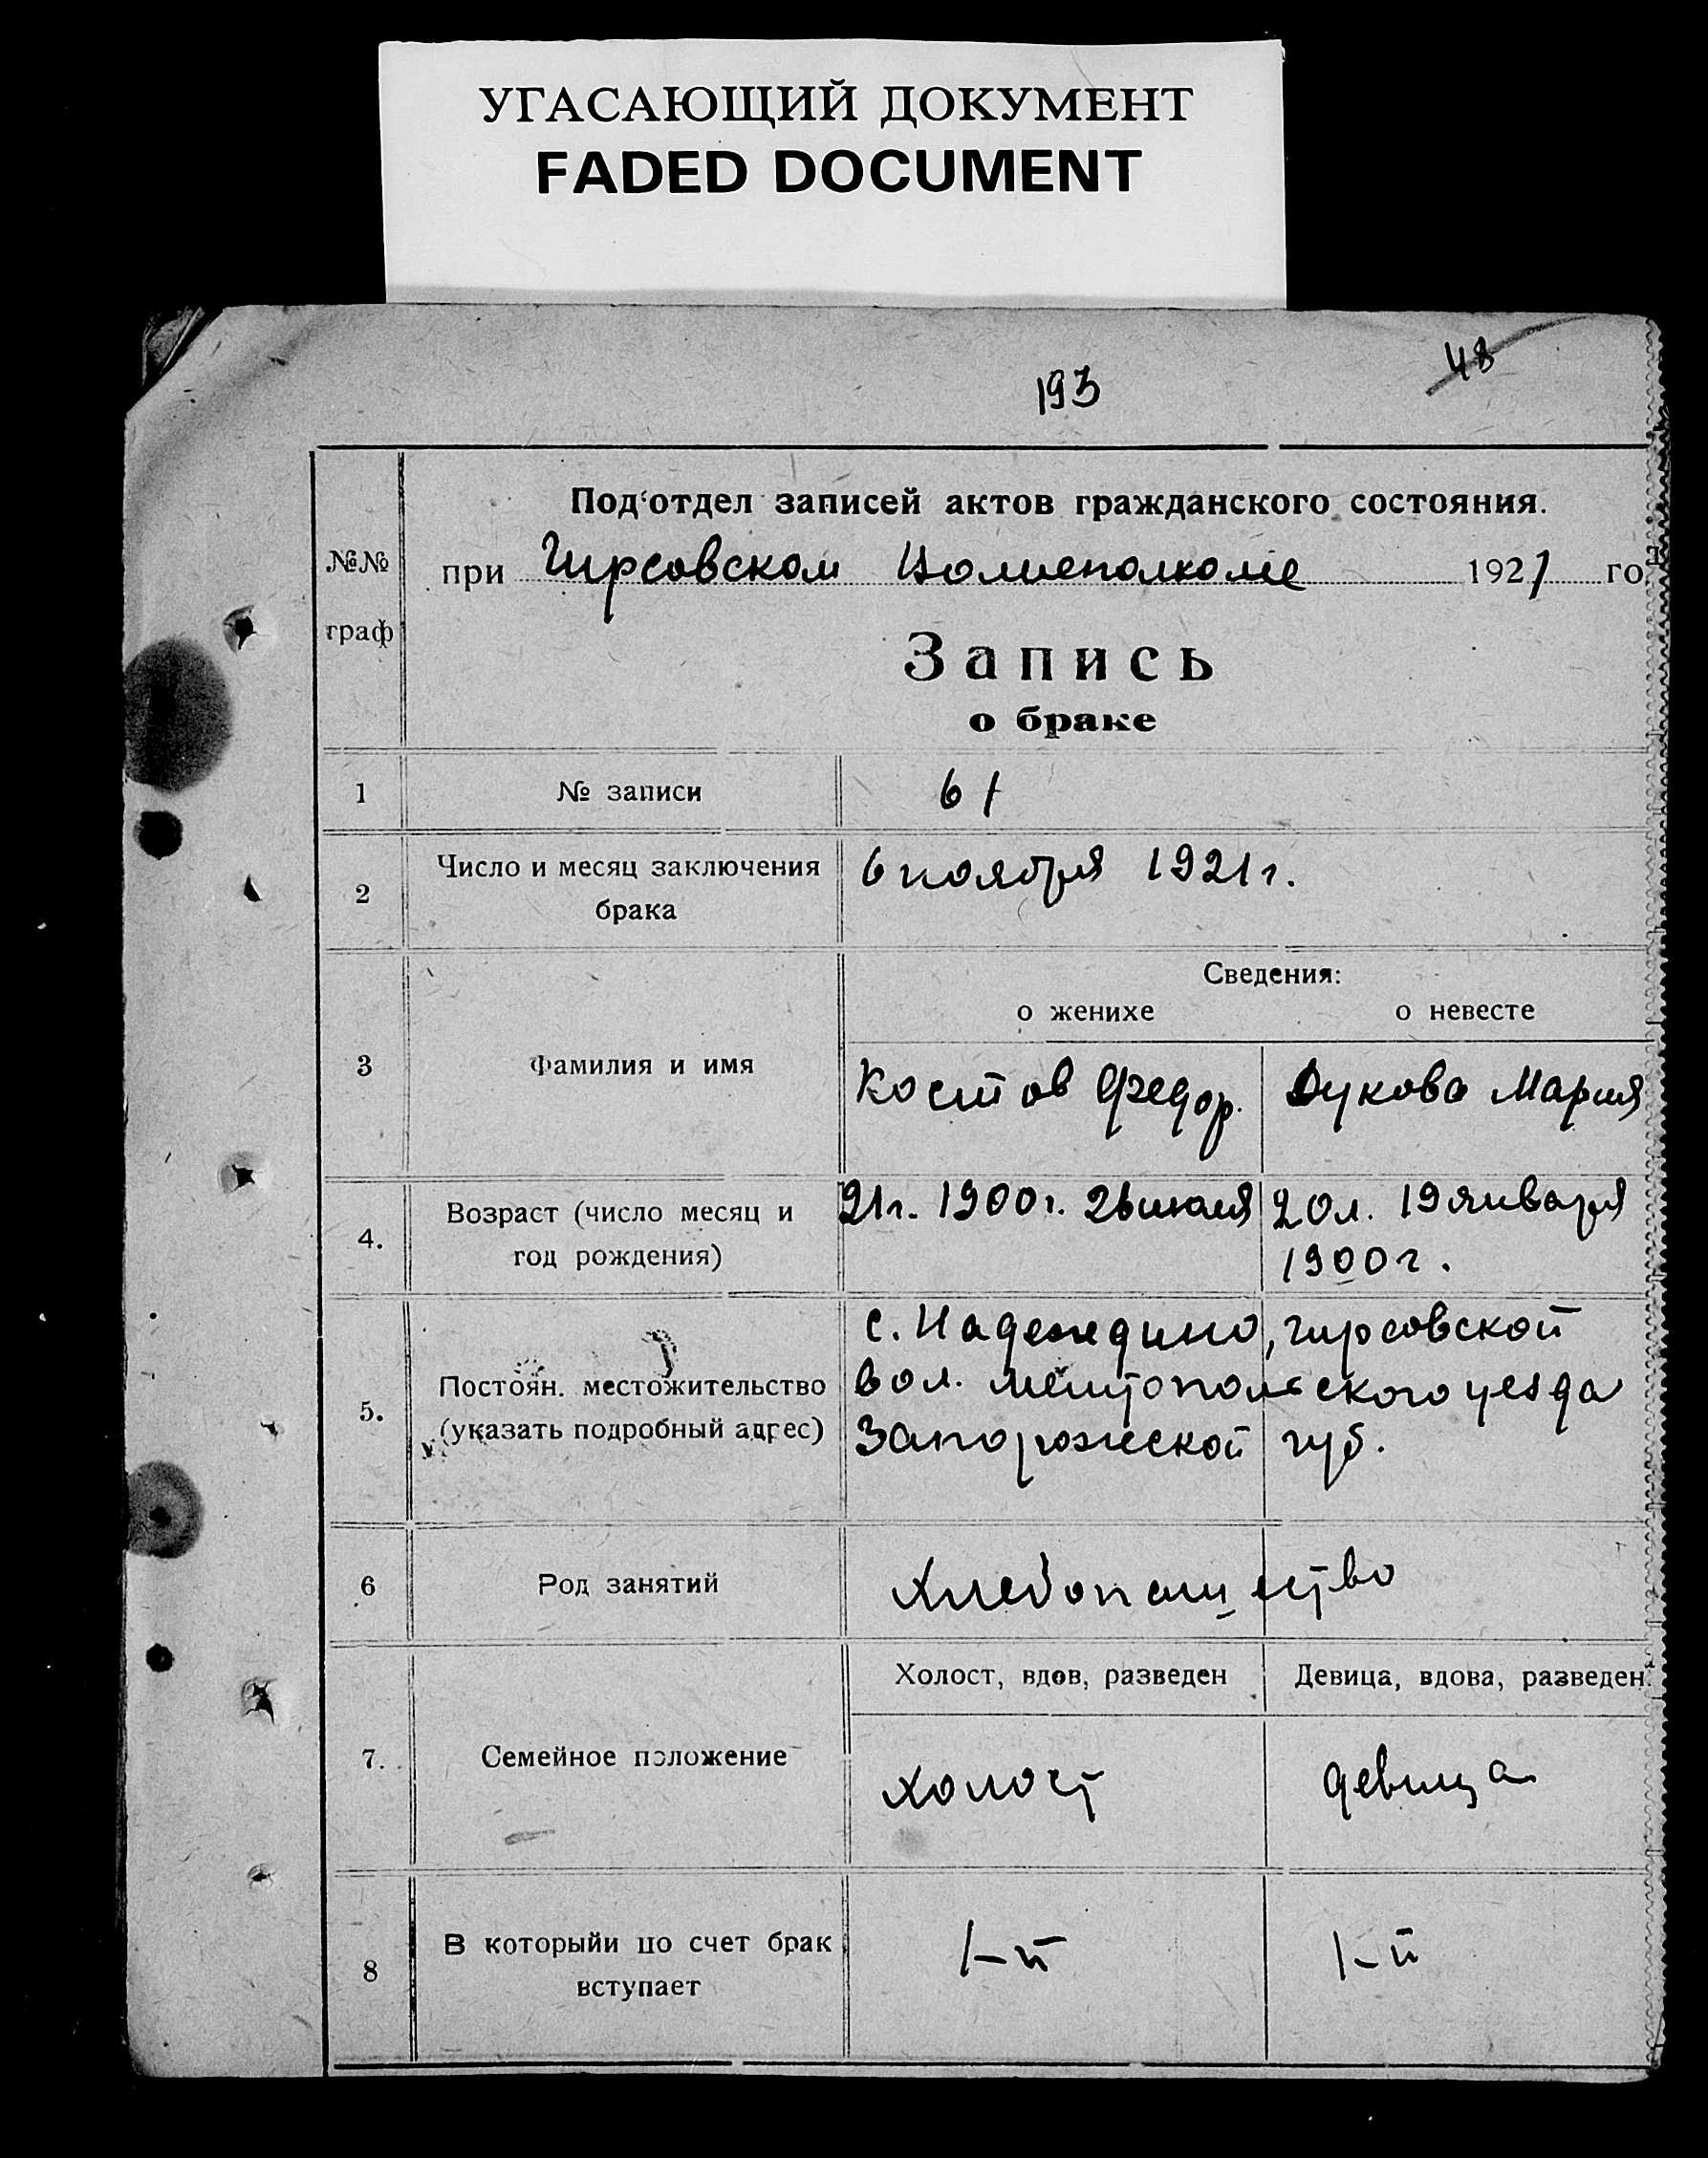 УГАСАЮЩИЙ ДОКУМЕНТ
FADED DOCUMENT
48
193
Под'отдел записей актов гражданского состояния.
№№ граф
при Гирсовском Волисполкоме 1921 год
Запись
о браке
1 № записи 61
2 Число и месяц заключения брака 6 ноября 1921 г.
Сведения:
о женихе о невесте
3 Фамилия и имя Костов Федор. Дукова Мария
4. Возраст (число месяц и год рождения) 21 г. 1900 г. 26 июля 20 л. 19 января
1900 г.
5. Постоян. местожительство (указать подробный адрес) с. Надеждино, Гирсовской
вол. Мелитопольского уезда
Запорожской губ.
6 Род занятий Хлебопашество
Холост, вдов, разведен Девица, вдова, разведен.
7. Семейное положение холост девица
8 В которыйи по счет брак вступает 1-й 1-й